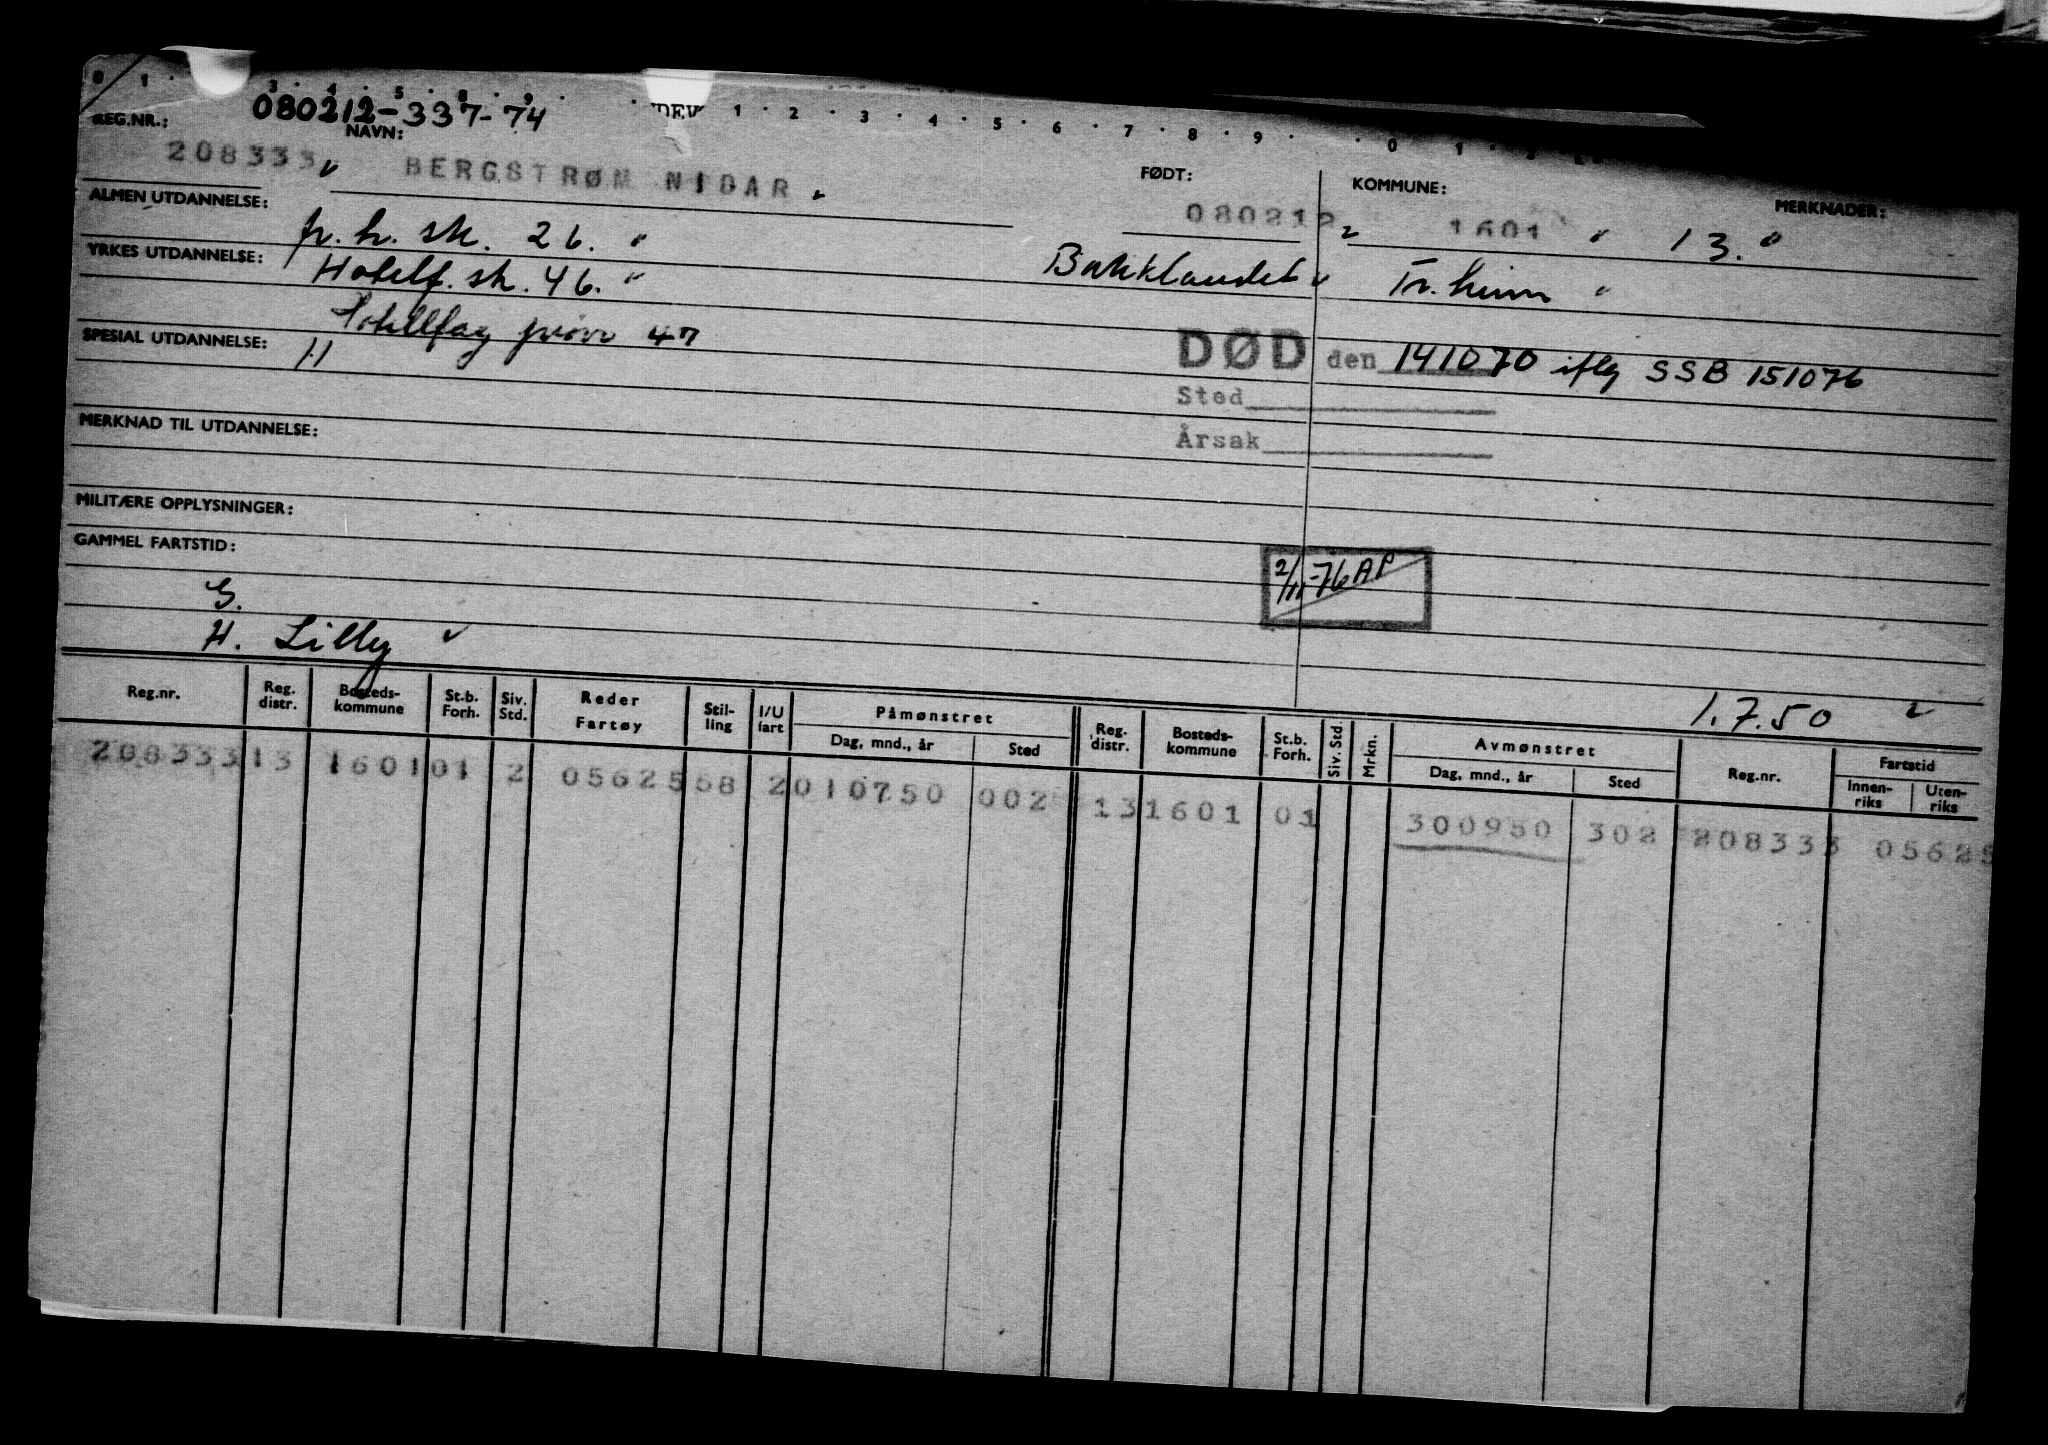 0 1 . 3 . 4 . 5 . 8 . 9 . . 1 . 2 . 3 . 4 . 5 . 6 . 7 . 8 . 9 . . 0 . 1 .
080212-337-74
REG.NR.: NAVN: FØDT: KOMMUNE: MERKNADER:
208333 BERGSTRØM NIDAR 080212 1601 13.
ALMEN UTDANNELSE: fr. h. sk. 26.
YRKES UTDANNELSE: Hotelf. sk. 46. Bakklandet Tr.heim
Hotellfag prøve 47
SPESIAL UTDANNELSE: H
DØD den 141070 iflg SSB 151076
Sted
Årsak
MERKNAD TIL UTDANNELSE:
MILITÆRE OPPLYSNINGER:
GAMMEL FARTSTID:
2/11-76 AP
G.
H. Lilly
1.7.50
Reg.nr. Reg. distr. Bosteds-kommune St.b. Forh. Siv. Std. Reder Fartøy Stil-ling I/U fart Påmønstret Dag, mnd., år Sted Reg. distr. Bosteds-kommune St.b. Forh. Siv. Std. Mrkn. Avmønstret Dag, mnd., år Sted Reg.nr. Fartstid Innen-riks Uten-riks
208333 13 1601 01 2 05625 58 2 010750 002 13 1601 01 300950 302 208333 05625